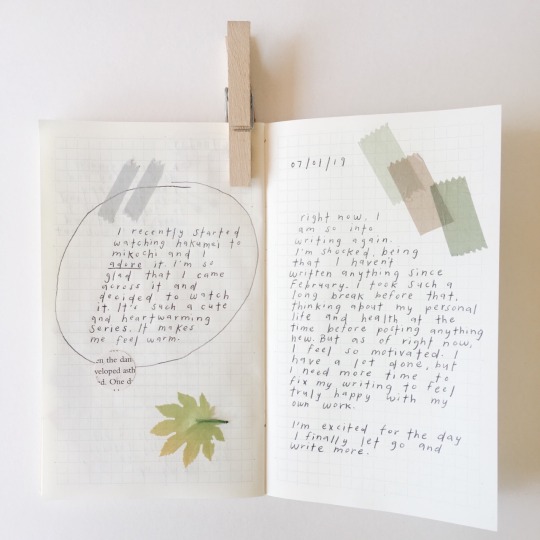 I recently started
watching hakumei to
mikochi and I
adore it. I'm so
glad that I came
across it and
decided to watch
it. It's such a cute
and heartwarming
series. It makes
me feel warm.
en the dan
veloped asth
d. One d
07/01/19
right now, I
am so into
writing again.
I'm shocked, being
that I haven't
written anything since
February. I took such a
long break before that,
thinking about my personal
life and health at the
time before posting anything
new. But as of right now,
I feel so motivated. I
have a lot done, but
I need more time to
fix my writing to feel
truly happy with my
own work.
I'm excited for the day
I finally let go and
write more.